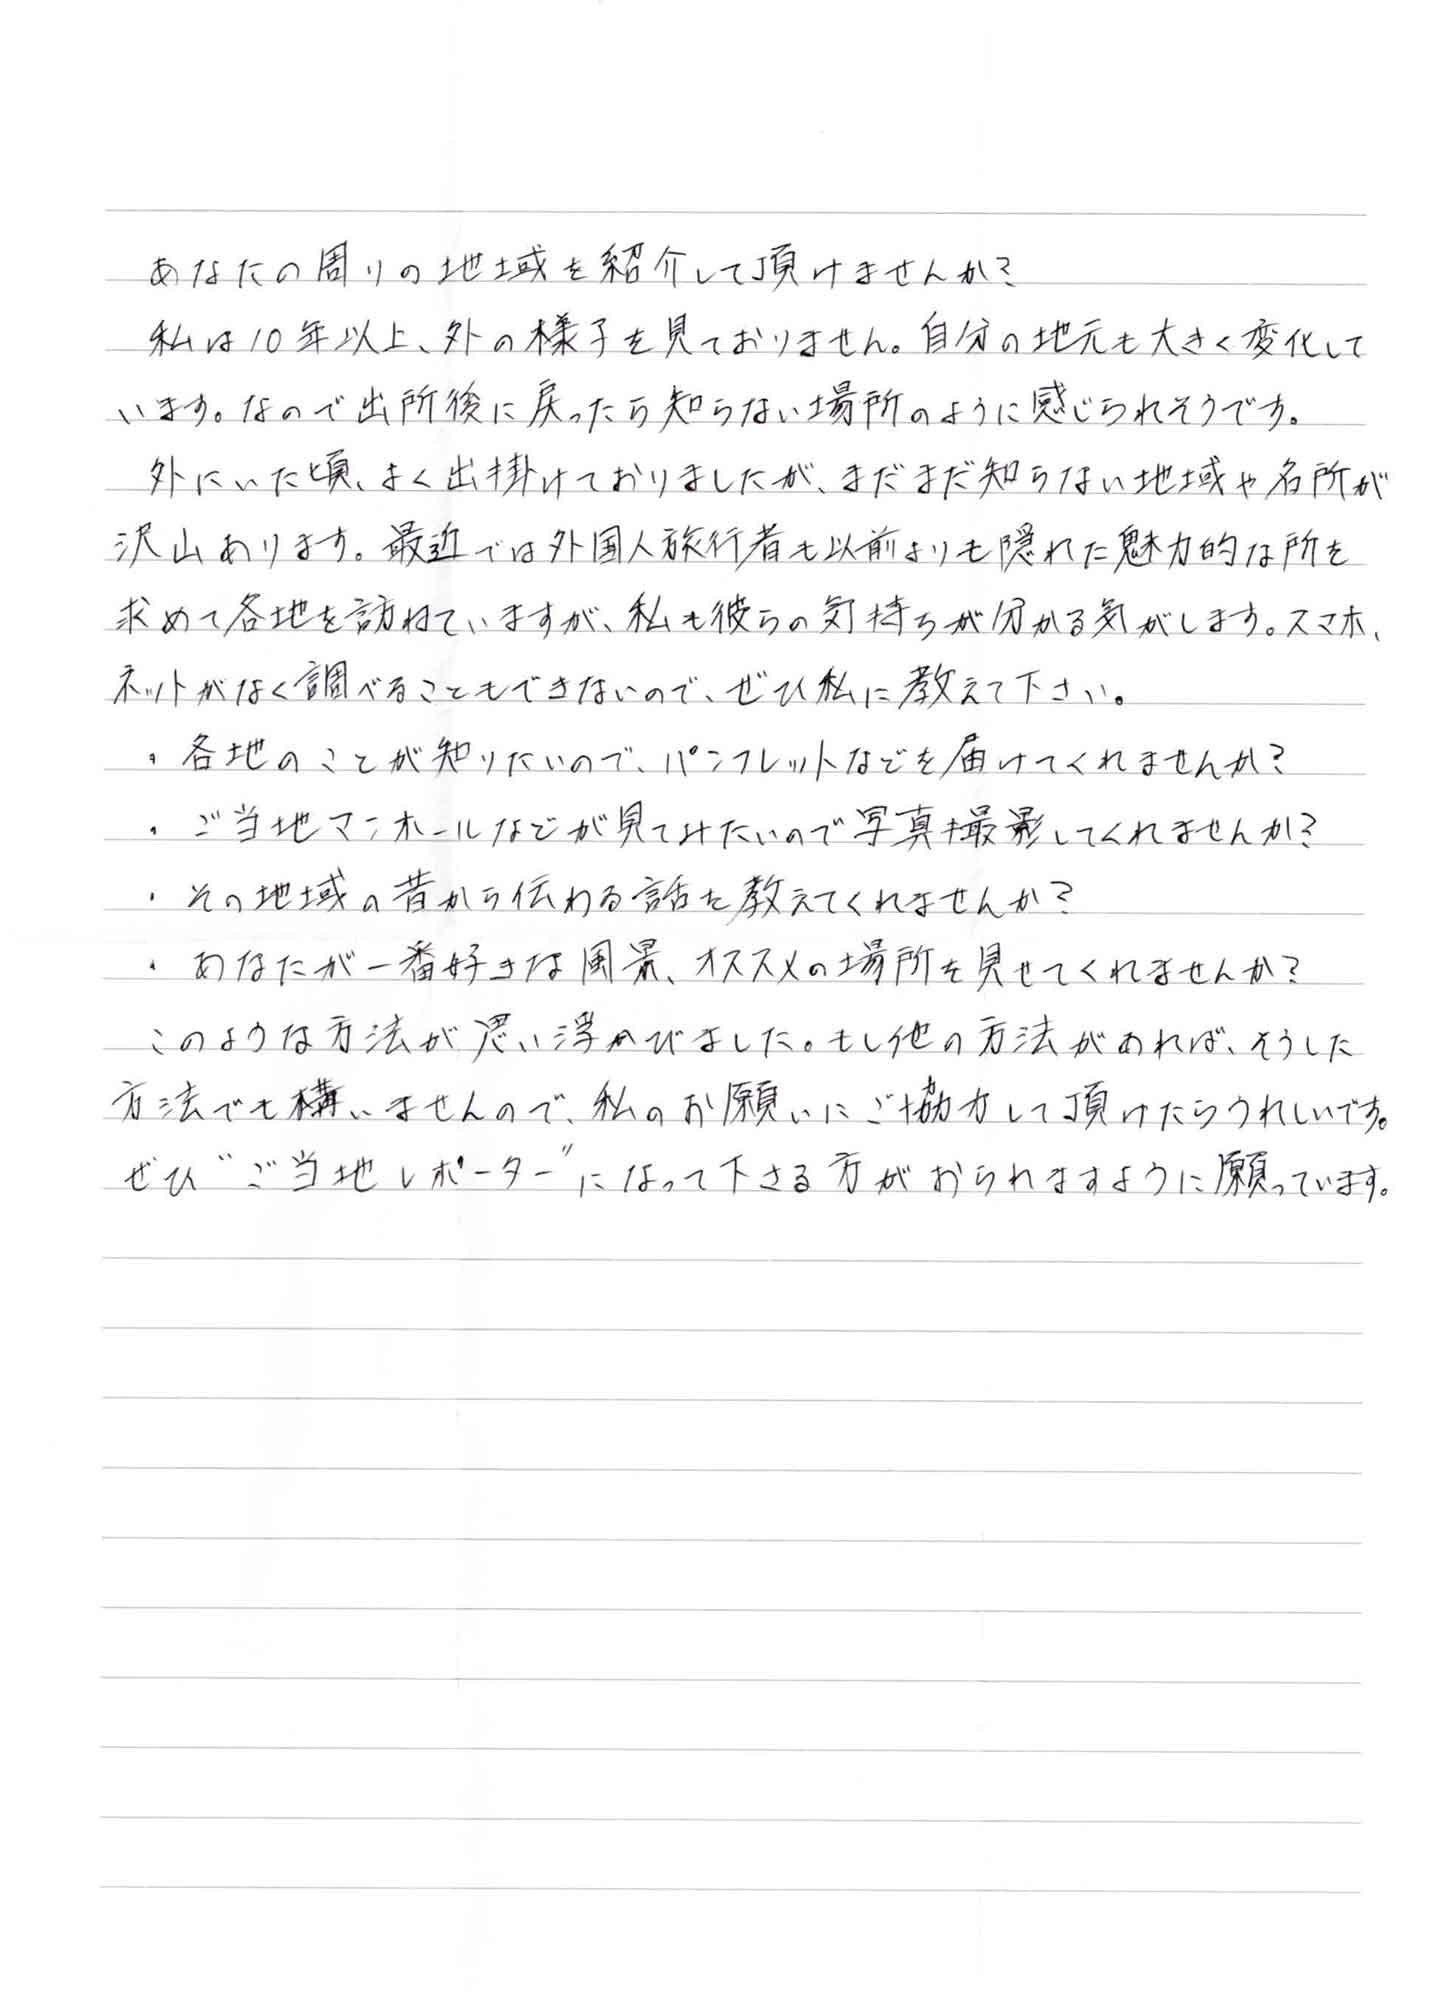 あなたの周りの地域を紹介して頂けませんか?
私は10年以上、外の様子を見ておりません。自分の地元も大きく変化して
います。なので出所後に戻ったら知らない場所のように感じられそうです。
外にいた頃、よく出掛けておりましたが、まだまだ知らない地域や名所が
沢山あります。最近では外国人旅行者も以前よりも隠れた魅力的な所を
求めて各地を訪ねていますが、私も彼らの気持ちが分かる気がします。スマホ、
ネットがなく調べることもできないので、ぜひ私に教えて下さい。
・各地のことが知りたいので、パンフレットなどを届けてくれませんか?
・ご当地マンホールなどが見てみたいので写真撮影してくれませんか?
・その地域の昔から伝わる話を教えてくれませんか?
・あなたが一番好きな風景、オススメの場所を見せてくれませんか?
このような方法が思い浮かびました。もし他の方法があれば、そうした
方法でも構いませんので、私のお願いにご協力して頂けたらうれしいです。
ぜひ"ご当地レポーター"になって下さる方がおられますように願っています。